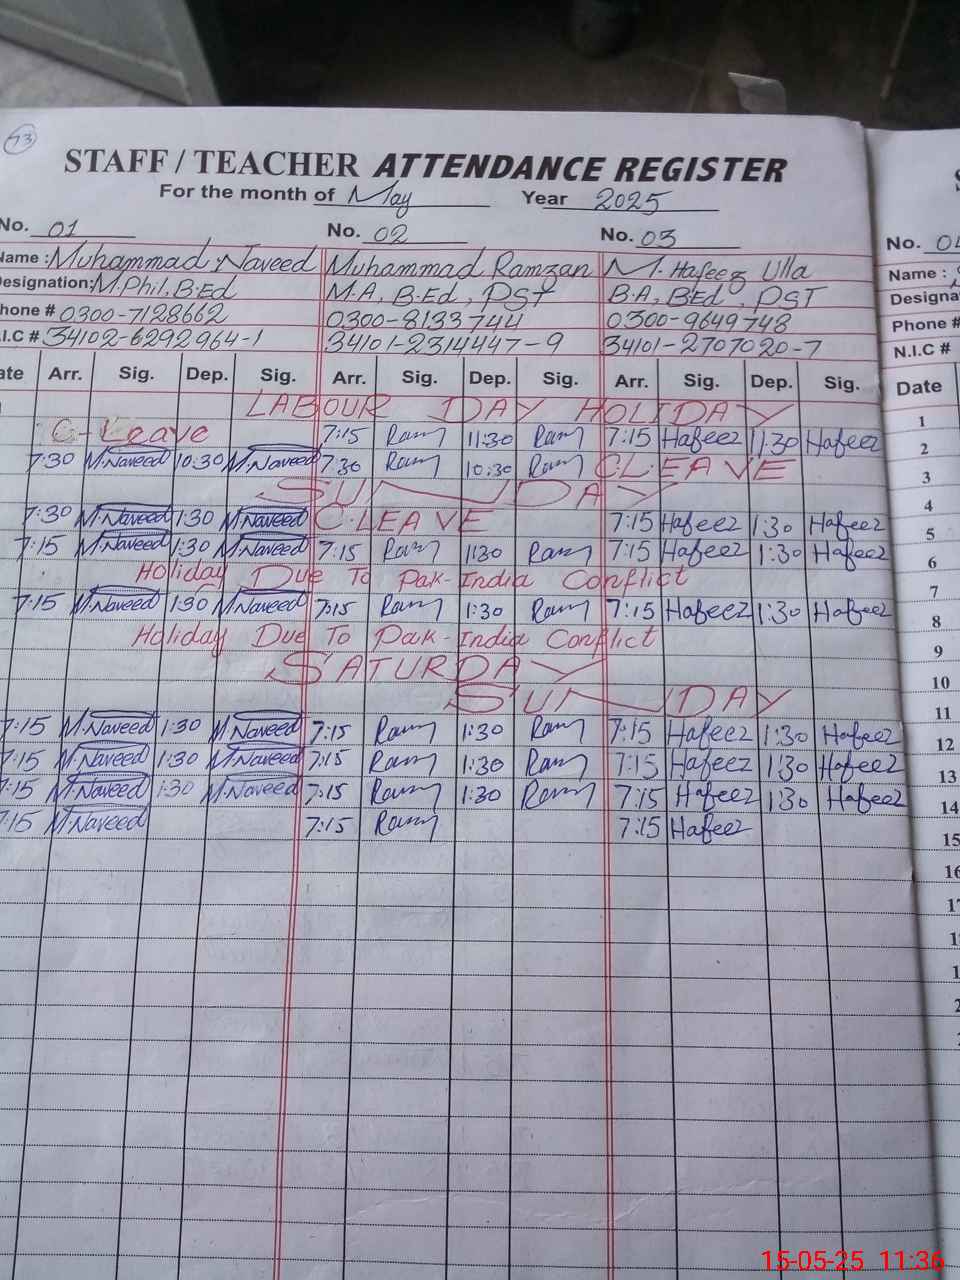 73
STAFF / TEACHER ATTENDANCE REGISTER
For the month of May Year 2025
No. 01 No. 02 No. 03 No.
Name : Muhammad Naveed Muhammad Ramzan M. Hafeez Ulla Name :
Designation: M.Phil, B.Ed M.A, B.Ed, PST B.A, B.Ed, PST
Phone # 0300-7128662 0300-8133744 0300-9649748 Phone #
N.I.C # 34102-6292964-1 34101-2314447-9 34101-2707020-7 N.I.C #
Arr. Sig. Dep. Sig. Arr. Sig. Dep. Sig. Arr. Sig. Dep. Sig. Date
LABOUR DAY HOLIDAY 1
C-Leave 7:15 Ram 11:30 Ram 7:15 Hafeez 11:30 Hafeez 2
7:30 M.Naveed 10:30 M.Naveed 7:30 Ram 10:30 Ram C.LEAVE 3
SUNDAY 4
7:30 M.Naveed 1:30 M.Naveed C.LEAVE 7:15 Hafeez 1:30 Hafeez 5
7:15 M.Naveed 1:30 M.Naveed 7:15 Ram 1:30 Ram 7:15 Hafeez 1:30 Hafeez 6
Holiday Due To Pak-India Conflict 7
7:15 M.Naveed 1:30 M.Naveed 7:15 Ram 1:30 Ram 7:15 Hafeez 1:30 Hafeez 8
Holiday Due To Pak-India Conflict 9
SATURDAY 10
SUNDAY 11
7:15 M.Naveed 1:30 M.Naveed 7:15 Ram 1:30 Ram 7:15 Hafeez 1:30 Hafeez 12
7:15 M.Naveed 1:30 M.Naveed 7:15 Ram 1:30 Ram 7:15 Hafeez 1:30 Hafeez 13
7:15 M.Naveed 1:30 M.Naveed 7:15 Ram 1:30 Ram 7:15 Hafeez 1:30 Hafeez 14
7:15 M.Naveed 7:15 Ram 7:15 Hafeez 15
16
15-05-25 11:36